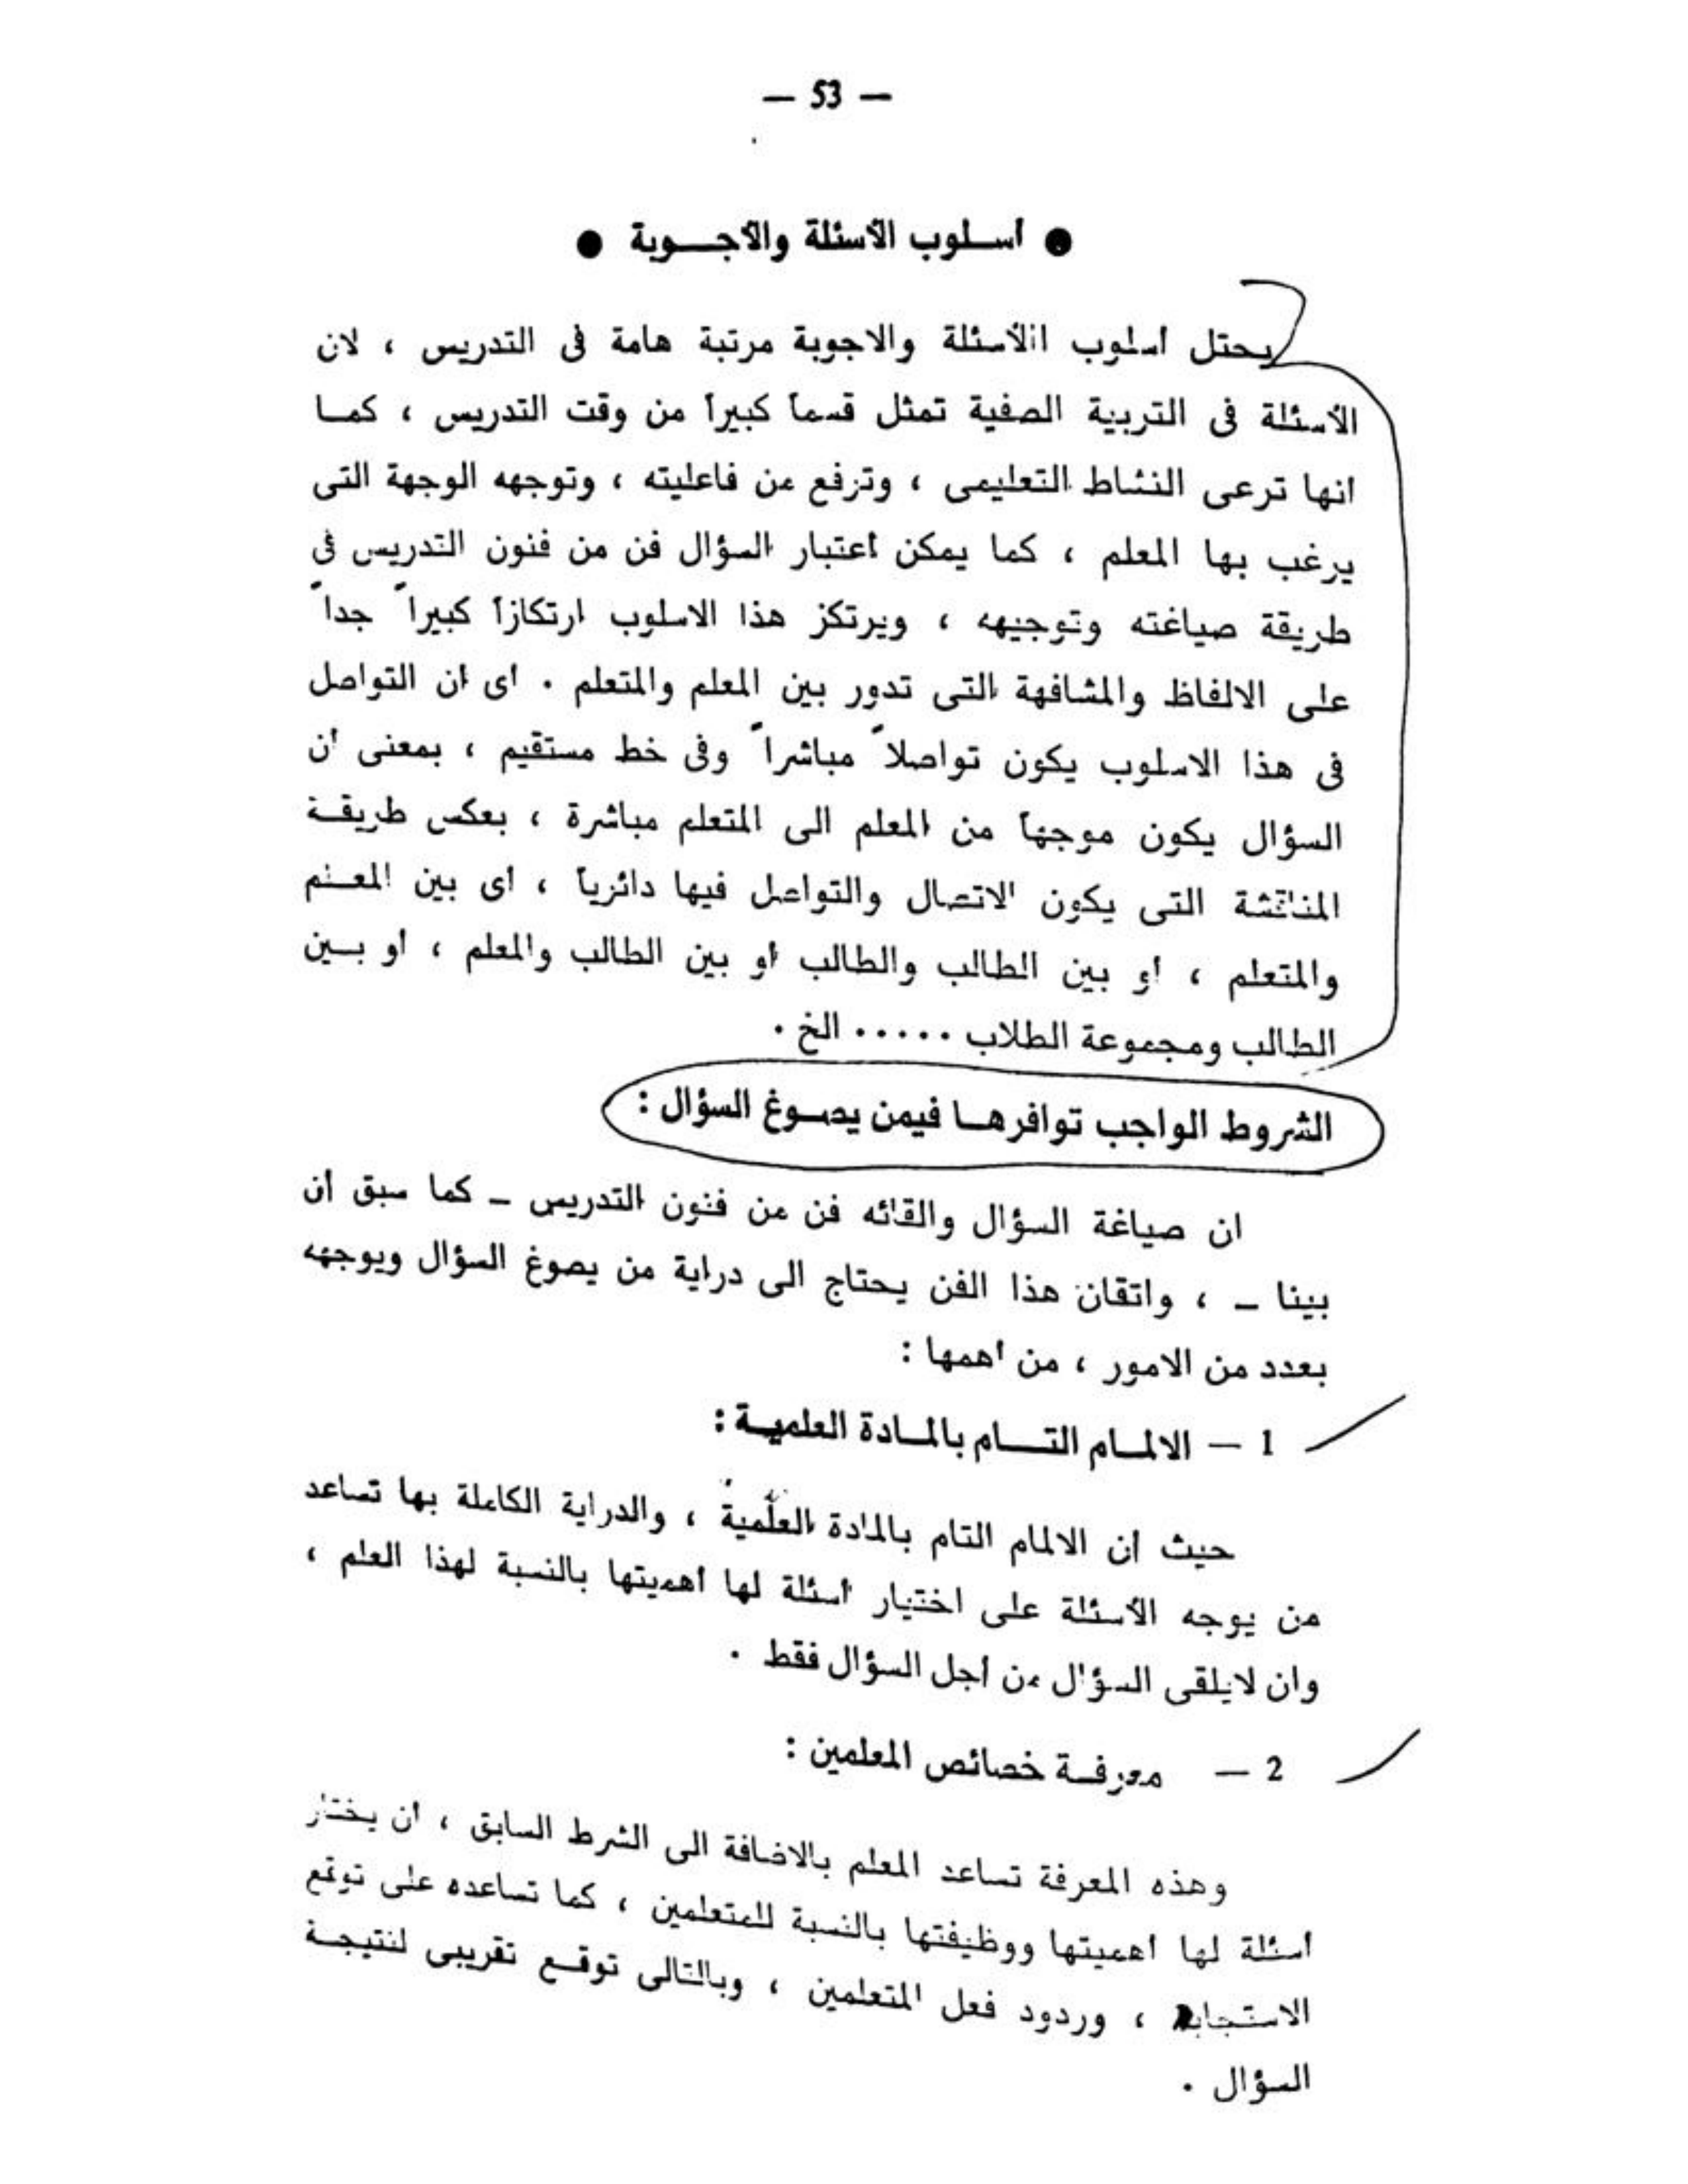 — 53 —
● أسلوب الأسئلة والأجوبة ●
يحتل أسلوب الأسئلة والاجوبة مرتبة هامة فى التدريس ، لان
الأسئلة فى التربية الصفية تمثل قسماً كبيراً من وقت التدريس ، كما
انها ترعى النشاط التعليمى ، وترفع من فاعليته ، وتوجهه الوجهة التى
يرغب بها المعلم ، كما يمكن اعتبار السؤال فن من فنون التدريس فى
طريقة صياغته وتوجيهه ، ويرتكز هذا الاسلوب ارتكازاً كبيراً جداً
على الالفاظ والمشافهة التى تدور بين المعلم والمتعلم . أى ان التواصل
فى هذا الاسلوب يكون تواصلاً مباشراً وفى خط مستقيم ، بمعنى أن
السؤال يكون موجهاً من المعلم الى المتعلم مباشرة ، بعكس طريقة
المناقشة التى يكون الاتصال والتواصل فيها دائرياً ، أى بين المعلم
والمتعلم ، أو بين الطالب والطالب أو بين الطالب والمعلم ، أو بين
الطالب ومجموعة الطلاب ..... الخ .
الشروط الواجب توافرها فيمن يصوغ السؤال :
ان صياغة السؤال والقائه فن من فنون التدريس ــ كما سبق أن
بينا ــ ، واتقان هذا الفن يحتاج الى دراية من يصوغ السؤال ويوجهه
بعدد من الامور ، من أهمها :
1 — الالمام التام بالمادة العلمية :
حيث أن الالمام التام بالمادة العلمية ، والدراية الكاملة بها تساعد
من يوجه الأسئلة على اختيار أسئلة لها أهميتها بالنسبة لهذا العلم ،
وان لايلقى السؤال من أجل السؤال فقط .
2 — معرفة خصائص المعلمين :
وهذه المعرفة تساعد المعلم بالاضافة الى الشرط السابق ، أن يختار
أسئلة لها أهميتها ووظيفتها بالنسبة للمتعلمين ، كما تساعده على توقع
الاستجابة ، وردود فعل المتعلمين ، وبالتالى توقع تقريبى لنتيجة
السؤال .